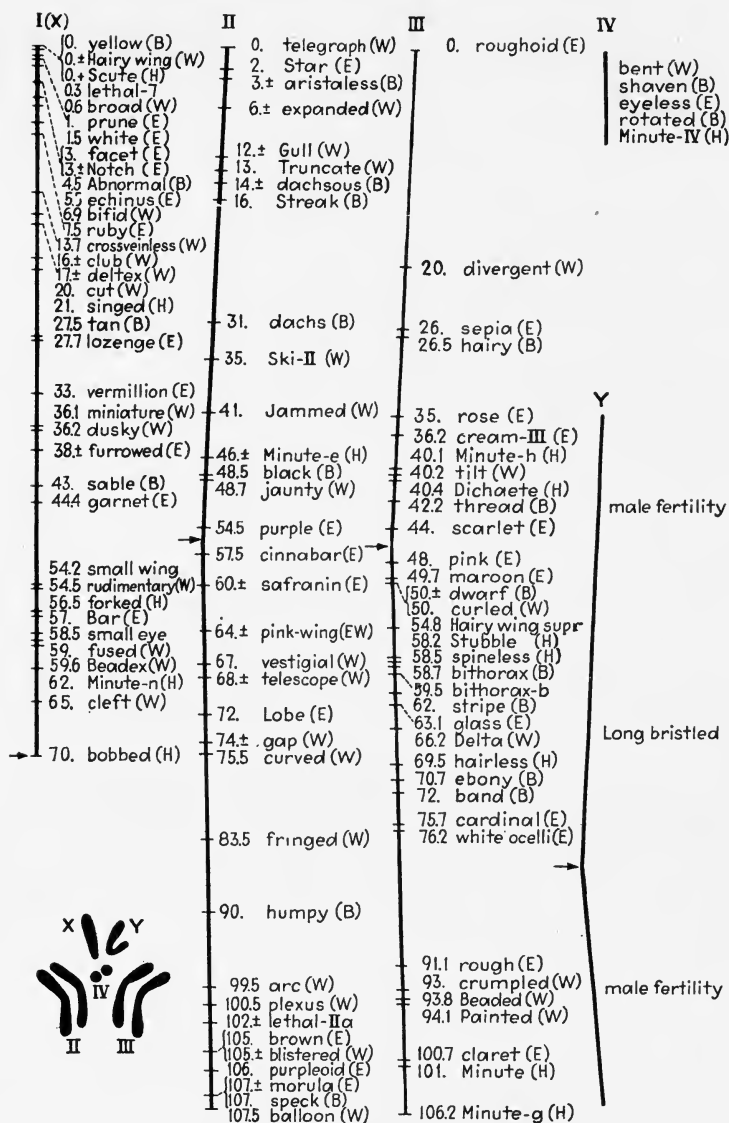 I(X)
0. yellow (B)
0.± Hairy wing (W)
0.+ Scute (H)
0.3 lethal-7
0.6 broad (W)
1. prune (E)
1.5 white (E)
3. facet (E)
3± Notch (E)
4.5 Abnormal (B)
5.5 echinus (E)
6.9 bifid (W)
7.5 ruby (E)
13.7 crossveinless (W)
16.± club (W)
17.± deltex (W)
20. cut (W)
21. singed (H)
27.5 tan (B)
27.7 lozenge (E)
33. vermillion (E)
36.1 miniature (W)
36.2 dusky (W)
38.± furrowed (E)
43. sable (B)
44.4 garnet (E)
54.2 small wing
54.5 rudimentary (W)
56.5 forked (H)
57. Bar (E)
58.5 small eye
59. fused (W)
59.6 Beadex (W)
62. Minute-n (H)
65. cleft (W)
70. bobbed (H)
II
0. telegraph (W)
2. Star (E)
3.± aristaless (B)
6.± expanded (W)
12.± Gull (W)
13. Truncate (W)
14.± dachsous (B)
16. Streak (B)
31. dachs (B)
35. Ski-II (W)
41. Jammed (W)
46.± Minute-e (H)
48.5 black (B)
48.7 jaunty (W)
54.5 purple (E)
57.5 cinnabar (E)
60.± safranin (E)
64.± pink-wing (EW)
67. vestigial (W)
68.± telescope (W)
72. Lobe (E)
74.± gap (W)
75.5 curved (W)
83.5 fringed (W)
90. humpy (B)
99.5 arc (W)
100.5 plexus (W)
102.± lethal-IIa
105. brown (E)
105.± blistered (W)
106. purpleoid (E)
107.± morula (E)
107. speck (B)
107.5 balloon (W)
III
0. roughoid (E)
20. divergent (W)
26. sepia (E)
26.5 hairy (B)
35. rose (E)
36.2 cream-III (E)
40.1 Minute-h (H)
40.2 tilt (W)
40.4 Dichaete (H)
42.2 thread (B)
44. scarlet (E)
48. pink (E)
49.7 maroon (E)
50.± dwarf (B)
50. curled (W)
54.8 Hairy wing supr
58.2 Stubble (H)
58.5 spineless (H)
58.7 bithorax (B)
59.5 bithorax-b
62. stripe (B)
63.1 glass (E)
66.2 Delta (W)
69.5 hairless (H)
70.7 ebony (B)
72. band (B)
75.7 cardinal (E)
76.2 white ocelli (E)
91.1 rough (E)
93. crumpled (W)
93.8 Beaded (W)
94.1 Painted (W)
100.7 claret (E)
101. Minute (H)
106.2 Minute-g (H)
IV
bent (W)
shaven (B)
eyeless (E)
rotated (B)
Minute-IV (H)
Y
male fertility
Long bristled
male fertility
X Y
IV
II III